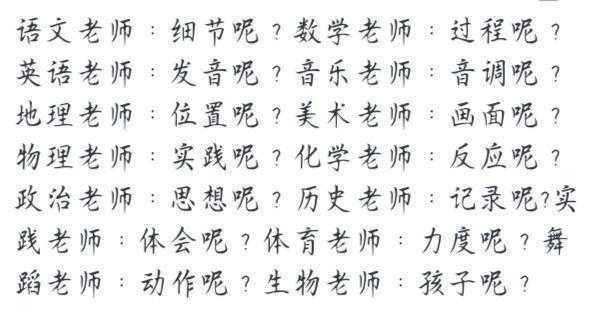 语文老师：细节呢？数学老师：过程呢？
英语老师：发音呢？音乐老师：音调呢？
地理老师：位置呢？美术老师：画面呢？
物理老师：实践呢？化学老师：反应呢？
政治老师：思想呢？历史老师：记录呢?实
践老师：体会呢？体育老师：力度呢？舞
蹈老师：动作呢？生物老师：孩子呢？